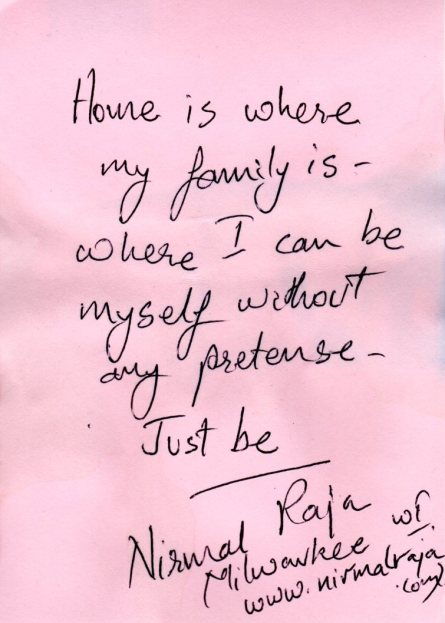 Home is where
my family is -
where I can be
myself without
any pretense -
Just be
Nirmal Raja
Milwaukee WI
www.nirmalraja
.com